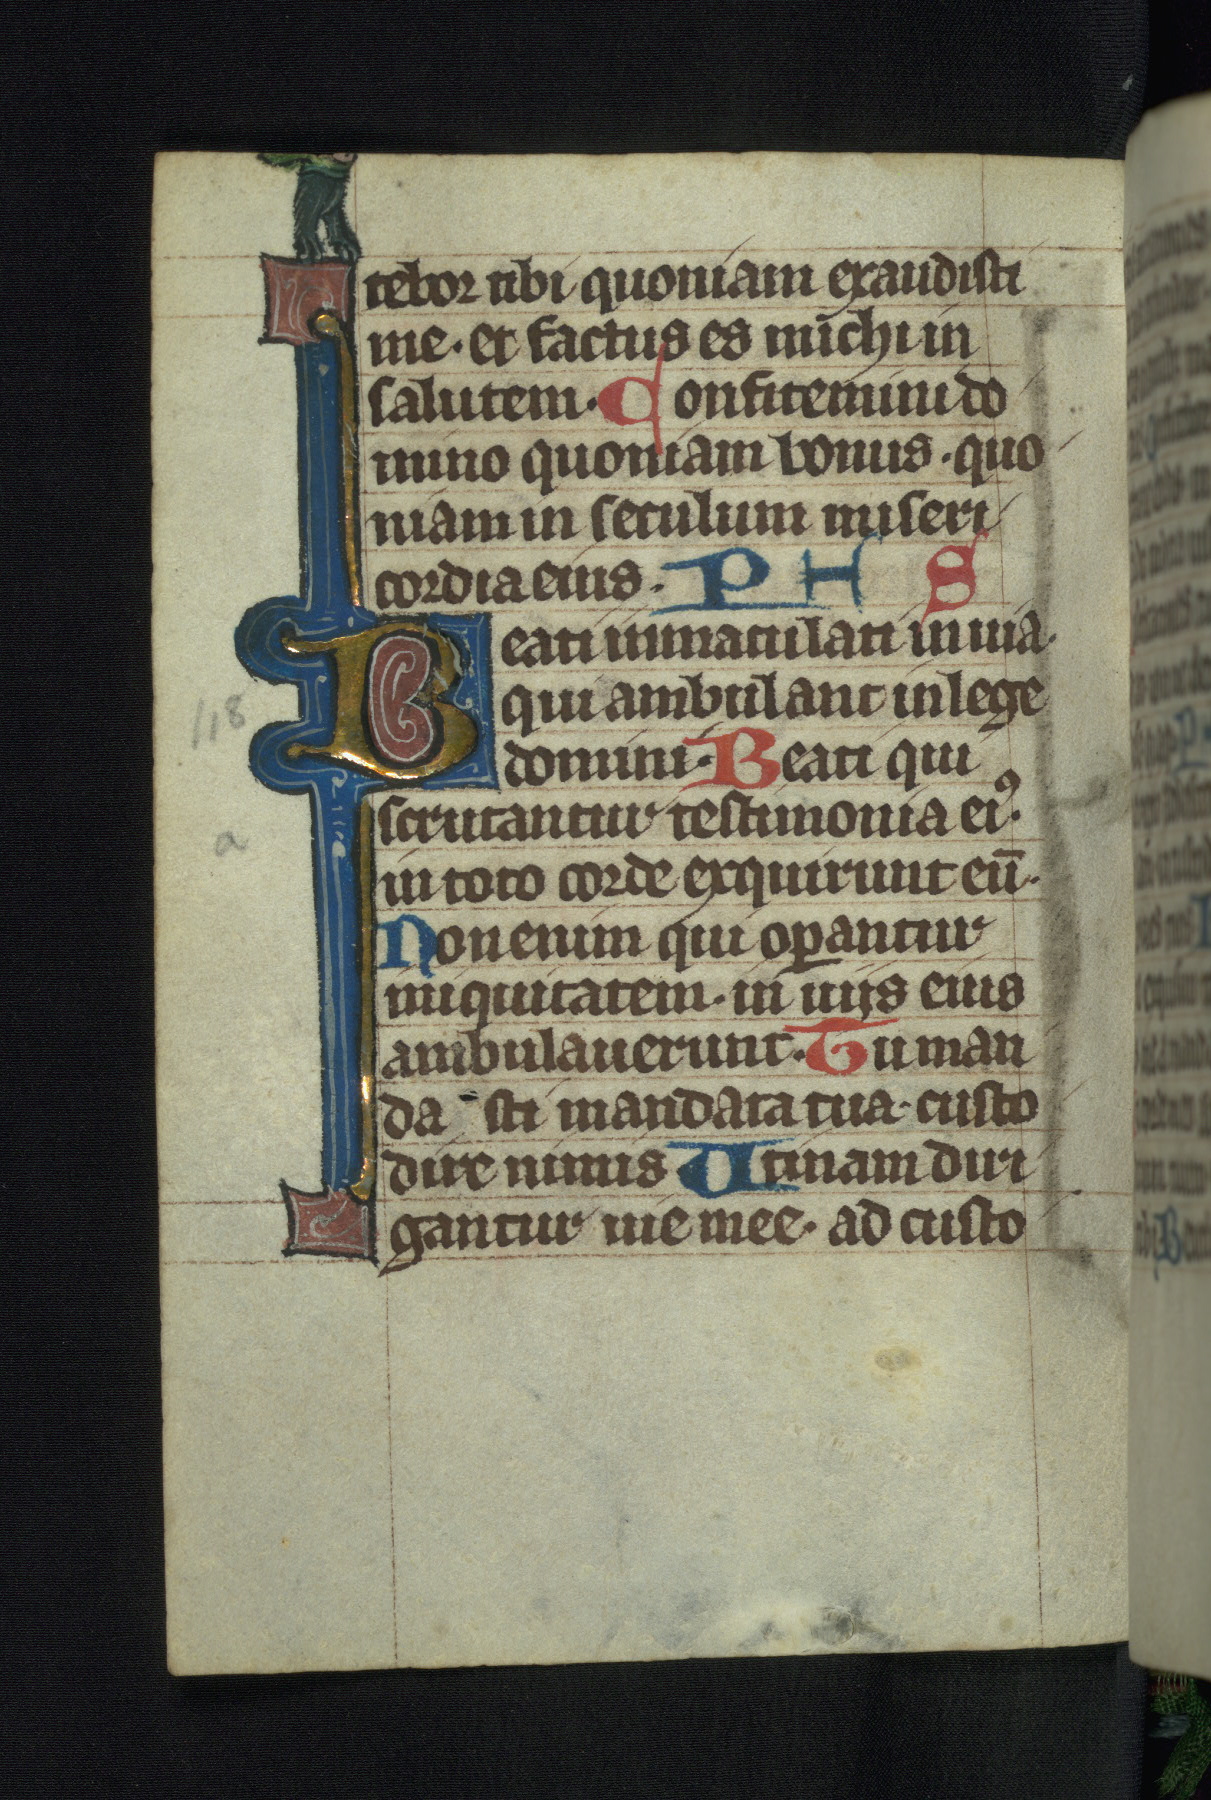 tebor tibi quoniam exaudisti
me· et factus es michi in
salutem· Confitemini do
mino quoniam bonus· quo
niam in seculum miseri
cordia eius· P H S
Beati inmaculati in uia·
qui ambulant in lege
domini· Beati qui
scrutantur testimonia eiꝰ·
in toto corde exquirunt eū·
Non enim qui oꝑantur
iniquitatem· in uijs eius
ambulauerunt· Tu man
da sti mandata tua· custo
dire nimis Utinam diri
gantur uie mee· ad custo
118
a